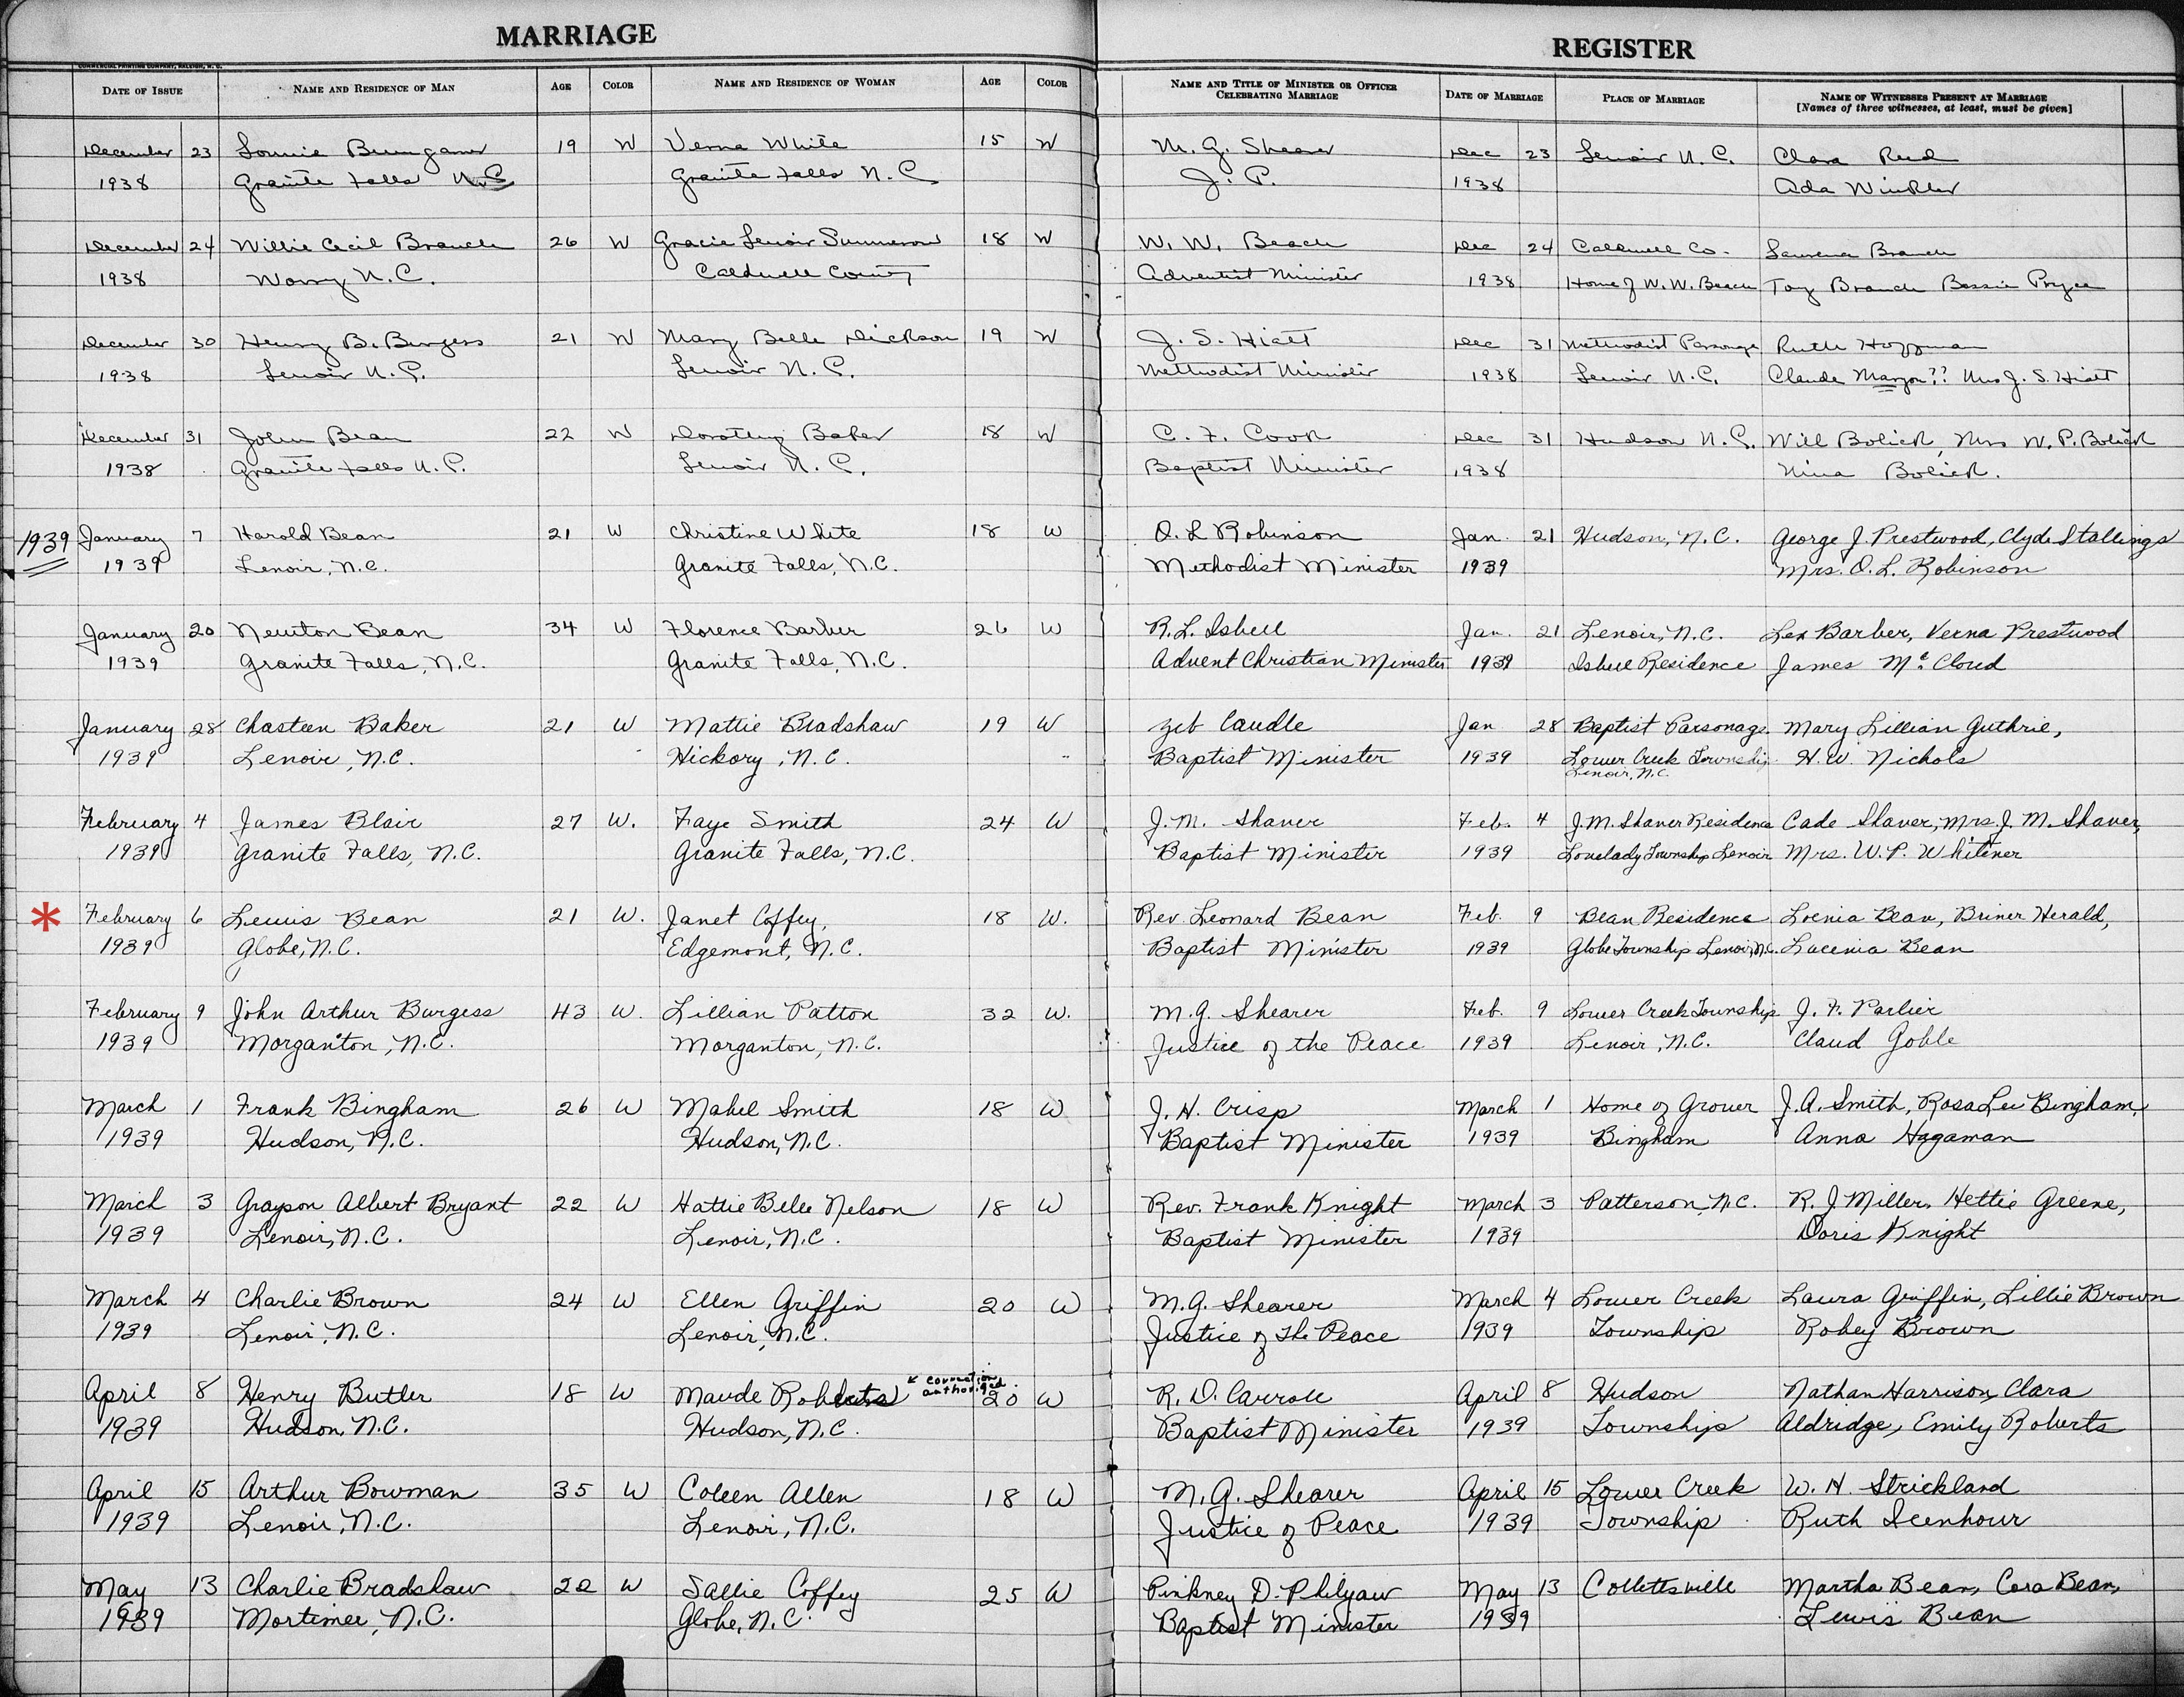 MARRIAGE REGISTER
COMMERCIAL PRINTING COMPANY, RALEIGH, N. C.
DATE OF ISSUE NAME AND RESIDENCE OF MAN AGE COLOR NAME AND RESIDENCE OF WOMAN AGE COLOR NAME AND TITLE OF MINISTER OR OFFICER CELEBRATING MARRIAGE DATE OF MARRIAGE PLACE OF MARRIAGE NAME OF WITNESSES PRESENT AT MARRIAGE
[Names of three witnesses, at least, must be given]
December 23 Lonnie Bumgarner 19 W Verna White 15 W M. G. Shearer Dec 23 Lenoir N. C. Clara Reid
1938 Granite Falls N.C Granite Falls N. C J. P. 1938 Ada Winkler
December 24 Willie Cecil Branch 26 W Gracie Lenoir Summerow 18 W W. W. Beach Dec 24 Caldwell Co. Laurence Branch
1938 Worry N. C. Caldwell County Adventist Minister 1938 Home of W. W. Beach Toy Branch Bessie Pryce
December 30 Henry B. Burgess 21 W Mary Belle Dickson 19 W J. S. Hiatt Dec 31 Methodist Parsonage Ruth Hoffman
1938 Lenoir N. C. Lenoir N. C. Methodist Minister 1938 Lenoir N. C. Claude Mayon?? Mrs J. S. Hiatt
December 31 John Bean 22 W Dorothy Baker 18 W C. F. Cook Dec 31 Hudson N. C. Will Bolick, Mrs W. P. Bolick
1938 Granite Falls N. C. Lenoir N. C. Baptist Minister 1938 Nina Bolick.
1939 January 7 Harold Bean 21 W Christine White 18 W O. L Robinson Jan. 21 Hudson, N. C. George J. Prestwood, Clyde Stallings
1939 Lenoir, N.C. Granite Falls, N.C. Methodist Minister 1939 Mrs. O. L. Robinson
January 20 Newton Bean 34 W Florence Barber 26 W R. L. Isbell Jan. 21 Lenoir, N.C. Lex Barber, Verna Prestwood
1939 Granite Falls, N.C. Granite Falls, N.C. Advent Christian Minister 1939 Isbell Residence James Mc. Cloud
January 28 Chasteen Baker 21 W Mattie Bradshaw 19 W Zeb Caudle Jan 28 Baptist Parsonage Mary Lillian Guthrie,
1939 Lenoir, N.C. Hickory, N.C. Baptist Minister 1939 Lower Creek Township H. W. Nichols
Lenoir, N.C.
February 4 James Blair 27 W. Faye Smith 24 W J. M. Shaver Feb. 4 J. M. Shaver Residence Cade Shaver, Mrs. J. M. Shaver,
1939 Granite Falls, N.C. Granite Falls, N.C. Baptist Minister 1939 Lovelady Township Lenoir Mrs. W. P. Whitener
* February 6 Lewis Bean 21 W. Janet Coffey, 18 W. Rev. Leonard Bean Feb. 9 Bean Residence Loenia Bean, Briner Herald,
1939 Globe, N.C. Edgemont, N.C. Baptist Minister 1939 Globe Township Lenoir, N.C. Lucenia Bean
February 9 John Arthur Burgess 43 W. Lillian Patton 32 W. M. G. Shearer Feb. 9 Lower Creek Township J. F. Parlier
1939 Morganton, N.C. Morganton, N.C. Justice of the Peace 1939 Lenoir, N.C. Claud Goble
March 1 Frank Bingham 26 W Mabel Smith 18 W J. H. Crisp March 1 Home of Grover J. A. Smith, Rosa Lee Bingham,
1939 Hudson, N.C. Hudson, N.C. Baptist Minister 1939 Bingham Anna Hagaman
March 3 Grayson Albert Bryant 22 W Hattie Belle Nelson 18 W Rev. Frank Knight March 3 Patterson, N.C. R. J. Miller, Hettie Greene,
1939 Lenoir, N.C. Lenoir, N.C. Baptist Minister 1939 Doris Knight
March 4 Charlie Brown 24 W Ellen Griffin 20 W M. G. Shearer March 4 Lower Creek Laura Griffin, Lillie Brown
1939 Lenoir, N.C. Lenoir, N.C. Justice of the Peace 1939 Township Robey Brown
April 8 Henry Butler 18 W Maude Roberts correction authorized. 20 W R. D. Carroll April 8 Hudson Nathan Harrison, Clara
1939 Hudson, N.C. Hudson, N.C. Baptist Minister 1939 Township Aldridge, Emily Roberts
April 15 Arthur Bowman 35 W Coleen Allen 18 W M. G. Shearer April 15 Lower Creek W. H. Strickland
1939 Lenoir, N.C. Lenoir, N.C. Justice of Peace 1939 Township Ruth Icenhour
May 13 Charlie Bradshaw 22 W Sallie Coffey 25 W Pinkney D. Philyaw May 13 Collettsville Martha Bean, Cora Bean,
1939 Mortimer, N.C. Globe, N.C. Baptist Minister 1939 Lewis Bean